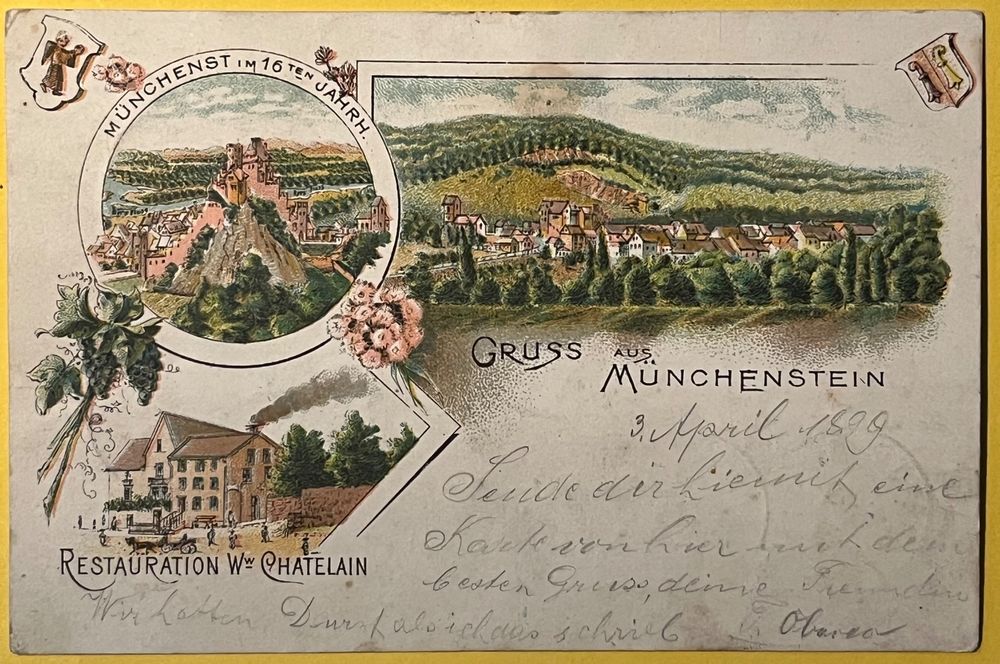 MÜNCHENST IM 16TEN JAHRH.
GRUSS AUS
MÜNCHENSTEIN
3. April 1899
Sende dir hiemit eine
Karte von hier mit dem
besten Gruss, deine Freundin
RESTAURATION Ww CHATELAIN
Wir hatten Durst als ich das schrieb